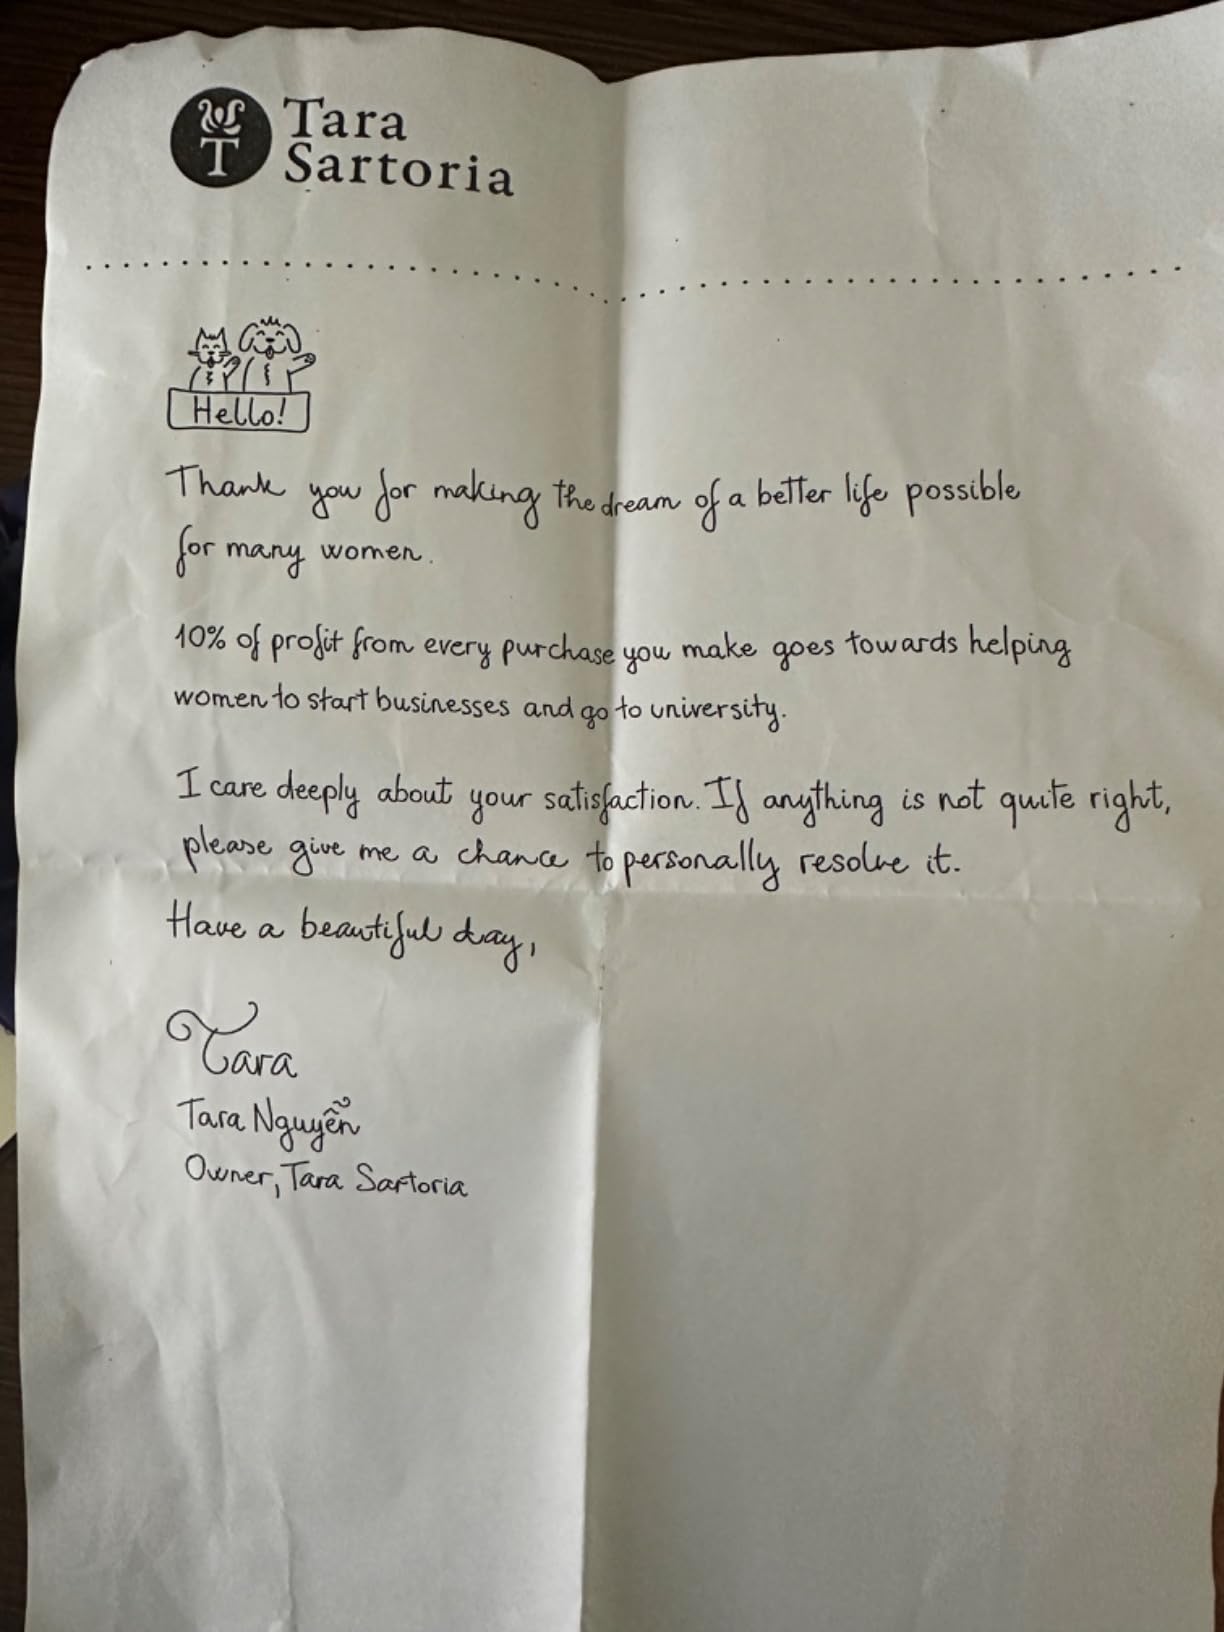 Tara
Sartoria
Hello!
Thank you for making the dream of a better life possible
for many women.
10% of profit from every purchase you make goes towards helping
women to start businesses and go to university.
I care deeply about your satisfaction. If anything is not quite right,
please give me a chance to personally resolve it.
Have a beautiful day,
Tara
Tara Nguyễn
Owner, Tara Sartoria